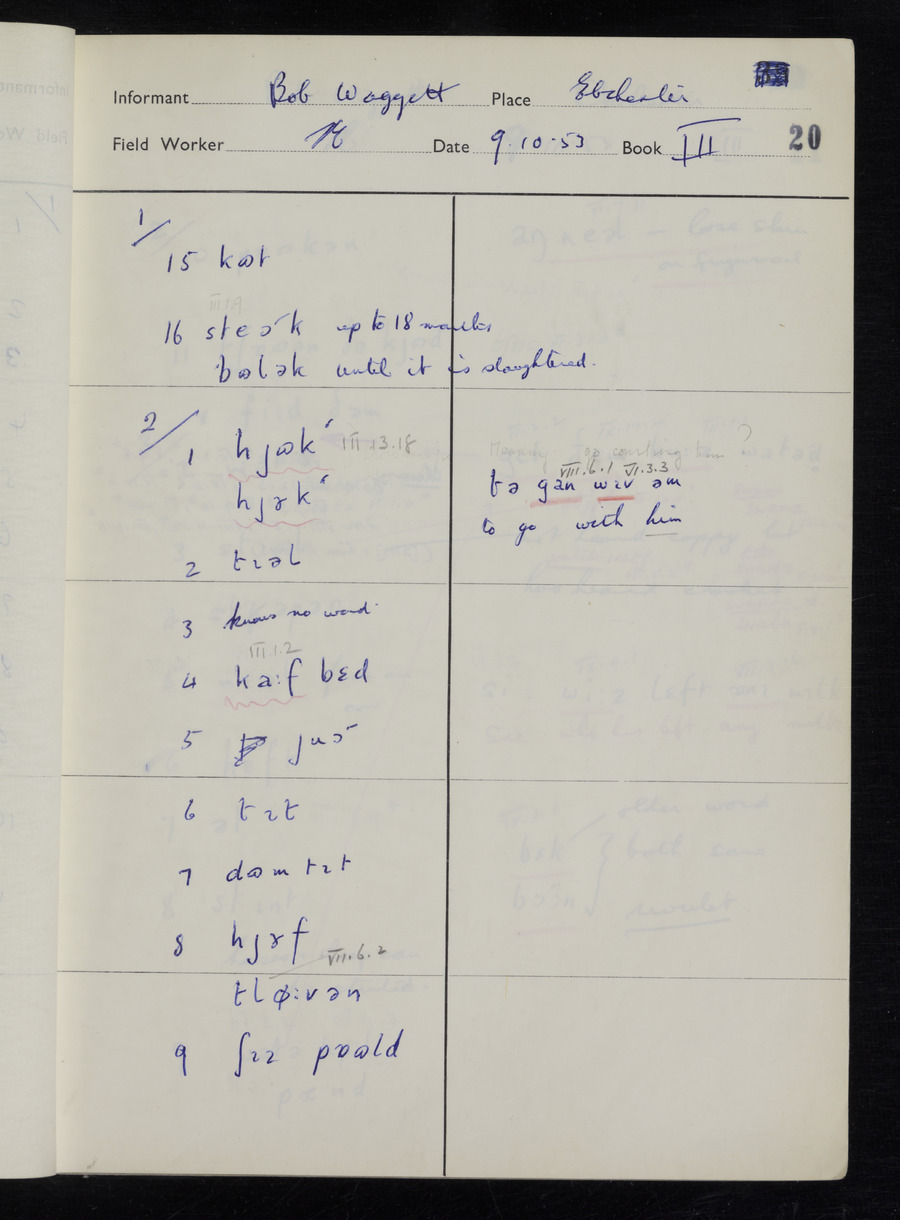 Informant Bob Waggett Place Ebchester
Field Worker Date 9.10.53 Book III 20
1/
15 kɷt
III 19
16 steəˊk up to 18 months
bɷlək until it is slaughtered.
2/
1 hjɷkˊ III.13.18
hjɤkˊ
2 tɩəl
3 knows no word
III.1.2
4 ka:f bɛd
5 juəˊ
6 tɩt
7 dɷm tɩt
8 hjɤf VII.6.2
tlø:vən
9 ʃɩɩ pɷɷld
?
VIII.6.1 VI.3.3
tə gan wɩv əm
to go with him